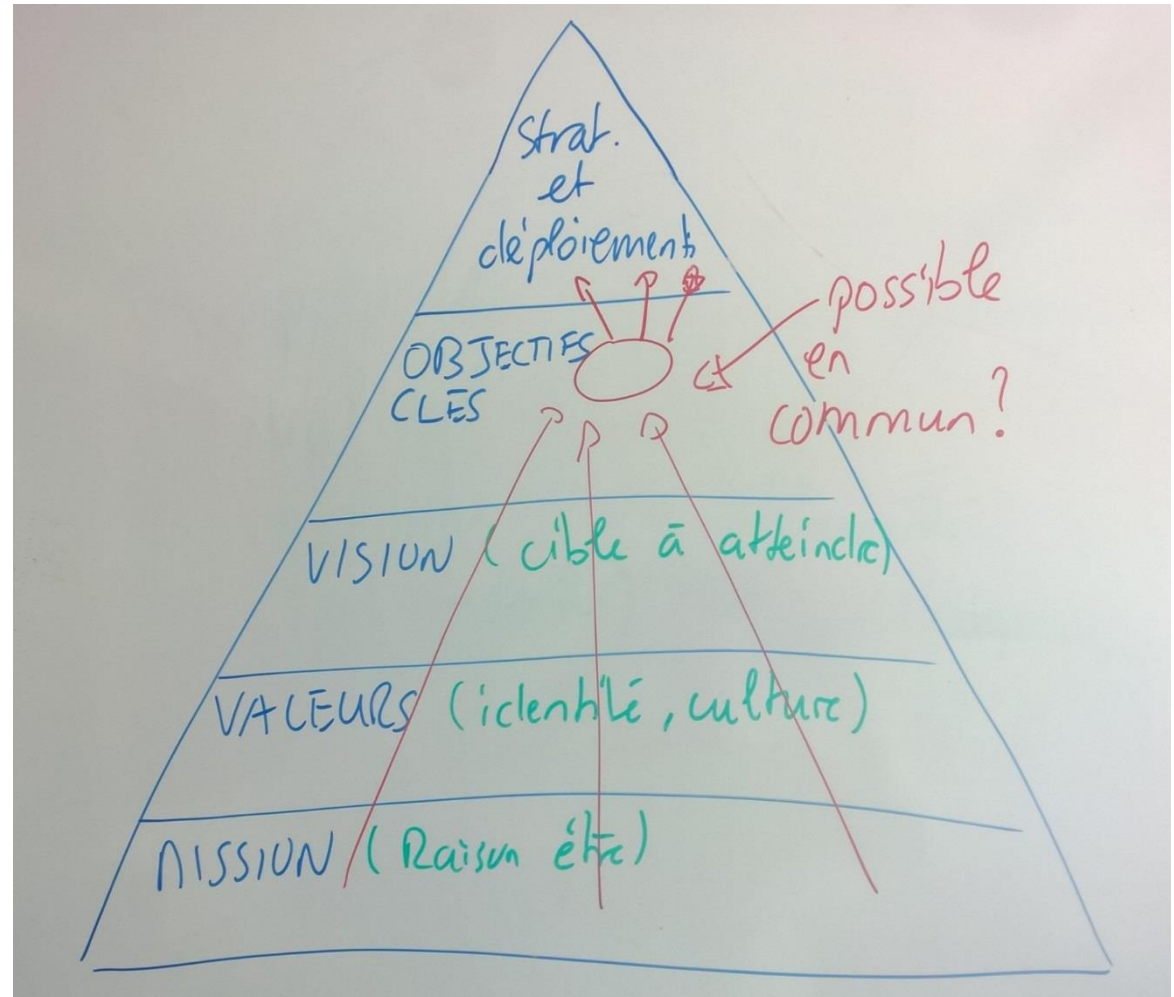 Strat.
et
déploiement
OBJECTIFS
CLES
possible
en
commun?
VISION (cible à atteindre)
VALEURS (identité, culture)
MISSION (Raison être)